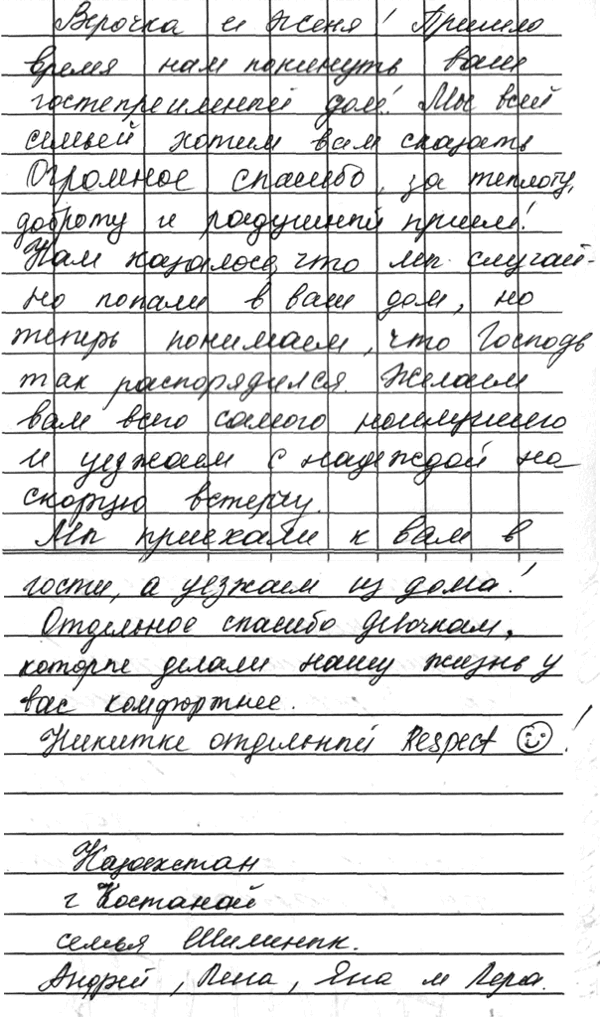 Верочка и Женя! Пришло
время нам покинуть ваш
гостеприимный дом! Мы всей
семьей хотим вам сказать
Огромное спасибо, за теплоту,
доброту и радушный прием!
Нам казалось, что мы случай-
но попали в ваш дом, но
теперь понимаем, что Господь
так распорядился. Желаем
вам всего самого наилучшего
и уезжаем с надеждой на
скорую встречу.
Мы приехали к вам в
гости, а уезжаем из дома!
Отдельное спасибо девочкам,
которые делали нашу жизнь у
вас комфортнее.
Никитке отдельный Respect !
Казахстан
г Костанай
семья
Андрей, Лена, Яна и Лера.